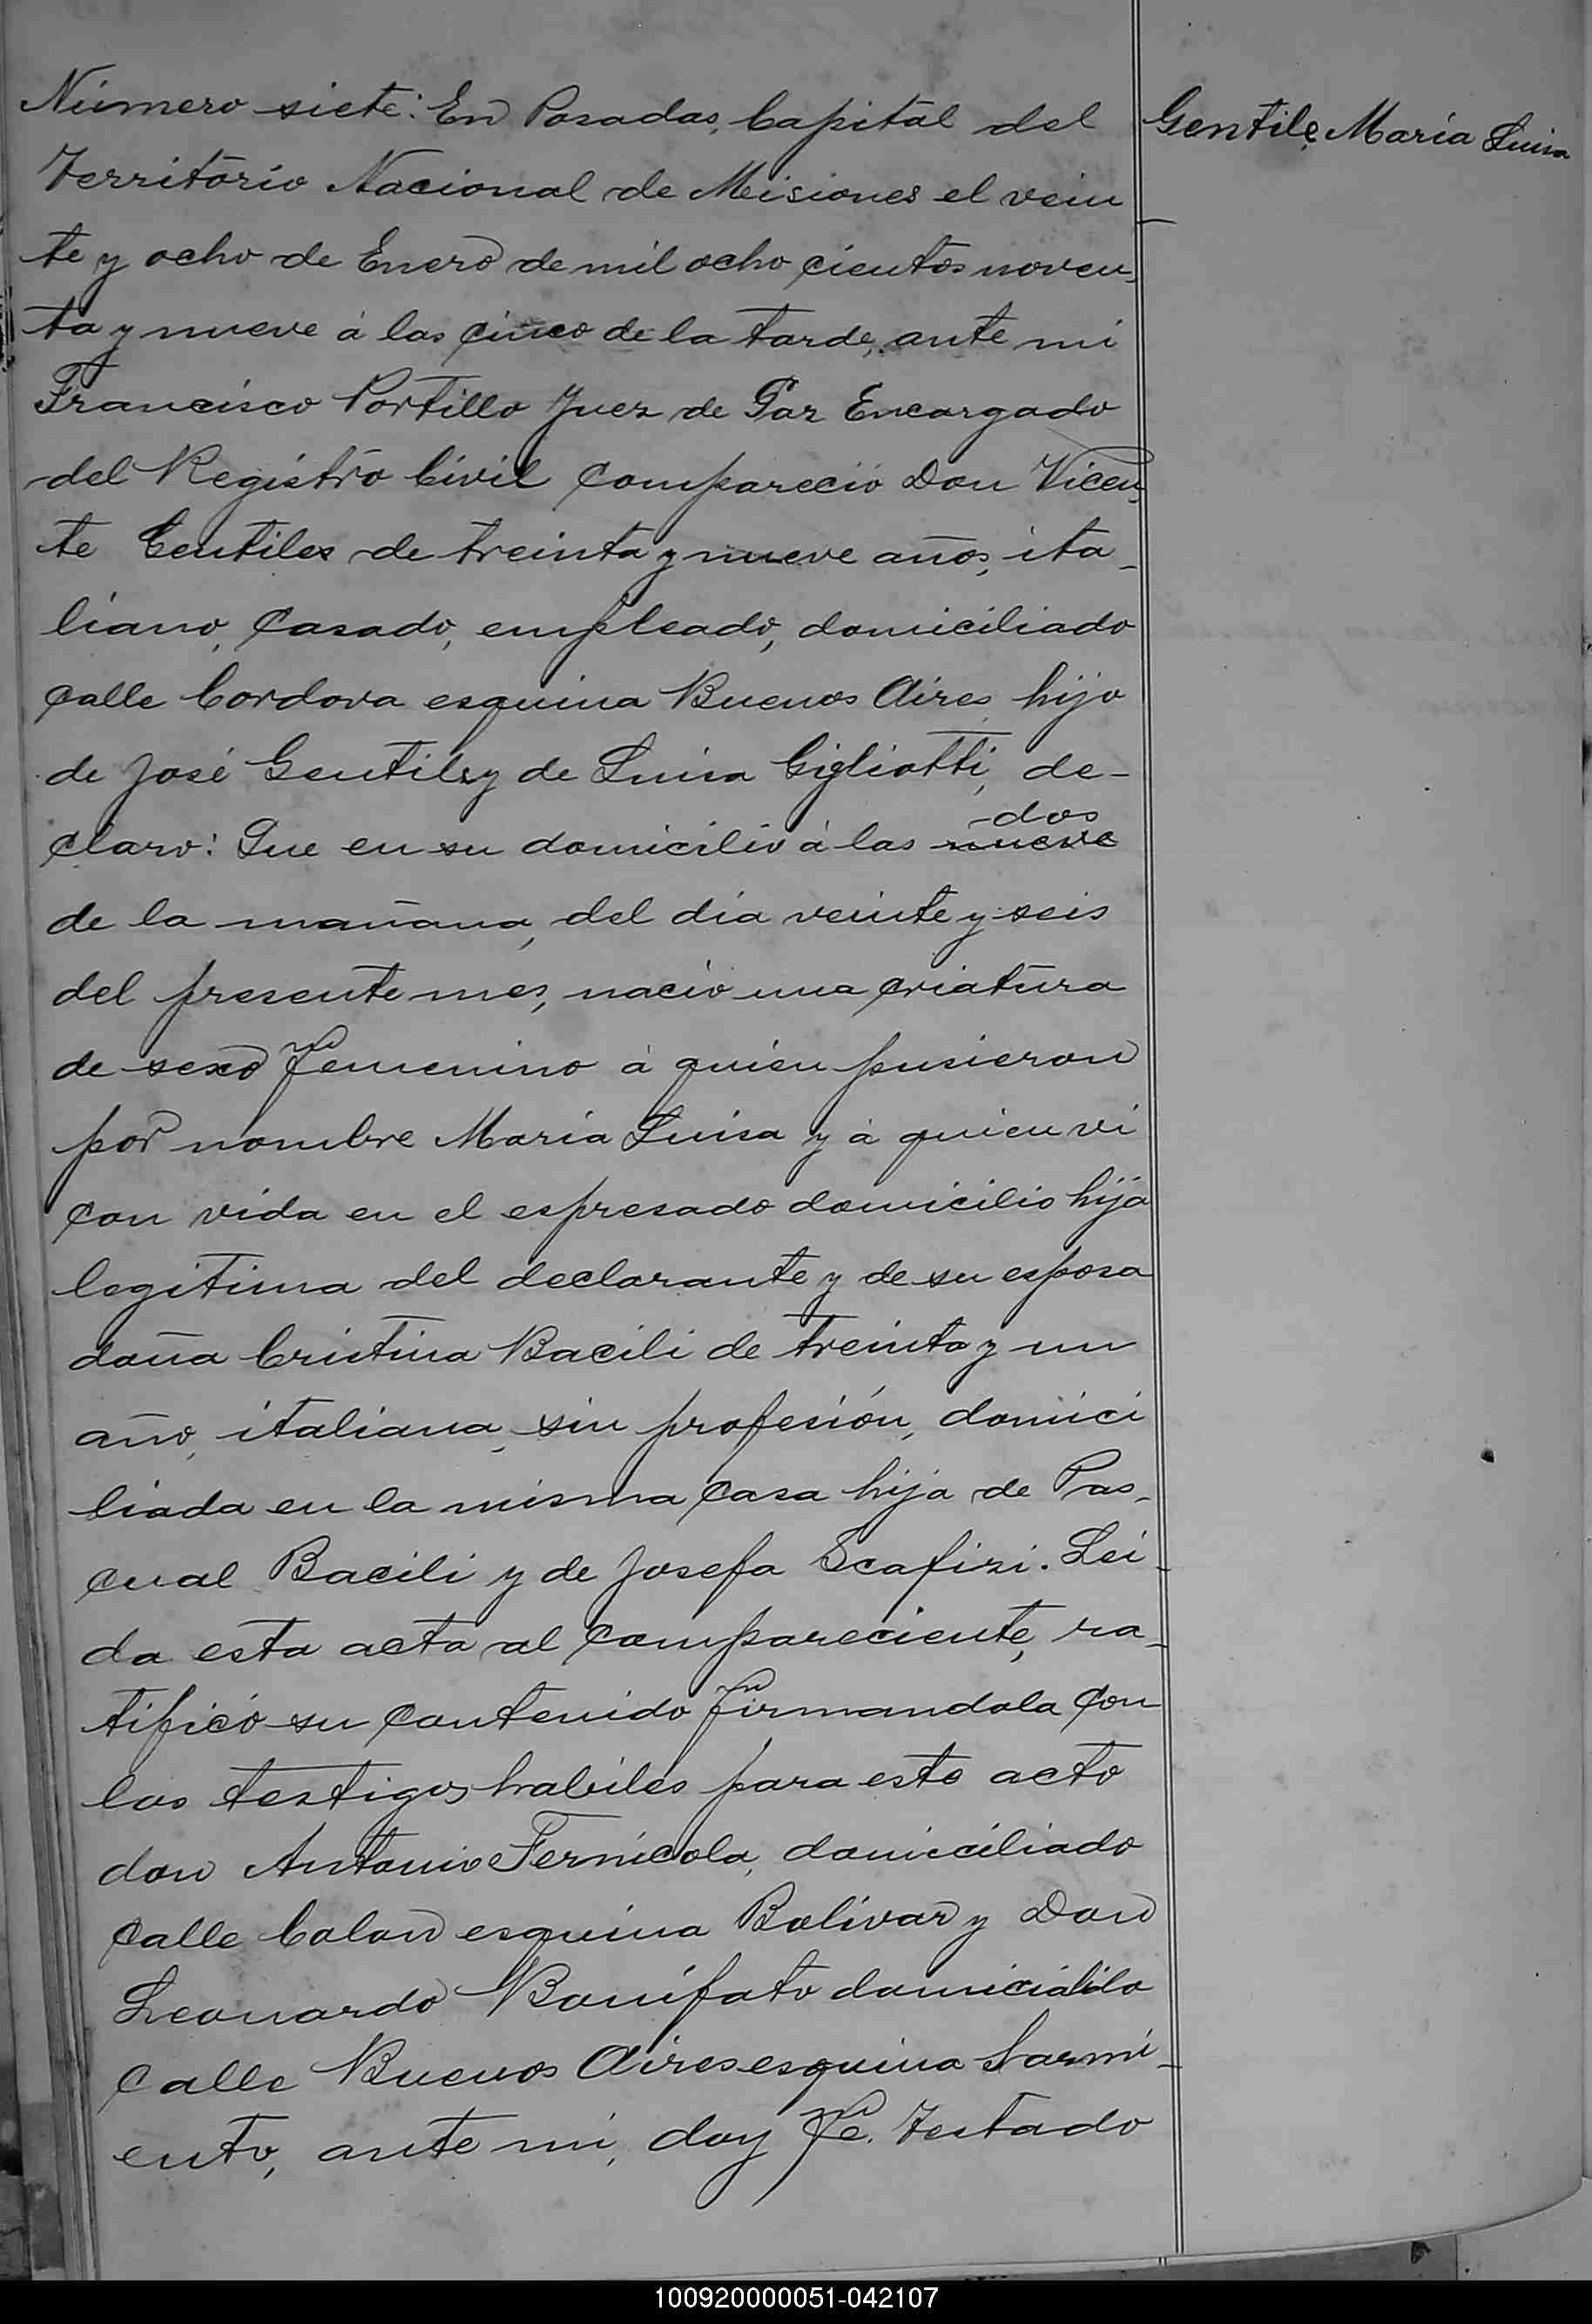 Número siete: En Posadas, Capital del
Territorio Nacional de Misiones el vein
te y ocho de Enero de mil ocho cientos noven,
ta y nueve á las cinco de la tarde, ante mi
Francisco Portillo Juez de Paz Encargado
del Registro Civil compareció Don Vicen,
te Gentiles de treinta y nueve años, ita-
liano, casado, empleado, domiciliado
calle Cordova esquina Buenos Aires hijo
de José Gentile y de Luisa Gigliotti, de-
claro: Que en su domicilio á las nueve dos
de la mañana, del dia veinte y seis
del presente mes, nació una criatura
de sexo femenino á quien pusieron
por nombre Maria Luisa y á quien vi
con vida en el espresado domicilio hija
legitima del declarante y de su esposa
doña Cristina Bacili de treinta y un
año, italiana, sin profesión, domici
liada en la misma casa hija de Pas-
cual Bacili y de Josefa Scafizi. Lei-
da esta acta al compareciente, ra-
tificó su contenido firmandola con
los testigos habiles para este acto
don Antonio Fernicola, domiciliado
calle Colon esquina Bolivar y Don
Leonardo Bonifato
calle Buenos Aires esquina Sarmi-
ento, ante mi, doy fe. Testado
Gentile Maria Luisa
100920000051-042107